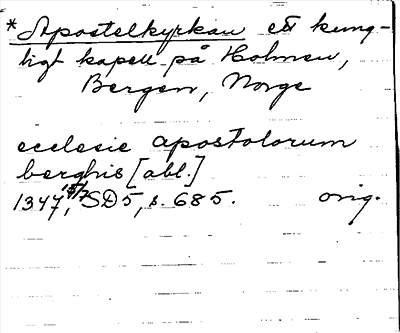 *Apostelkyrkan ett kung-
ligt kapell på Holmen,
Bergen, Norge
ecclesie apostolorum
berghis [abl.]
1347 15/7, SD5, s. 685. orig.